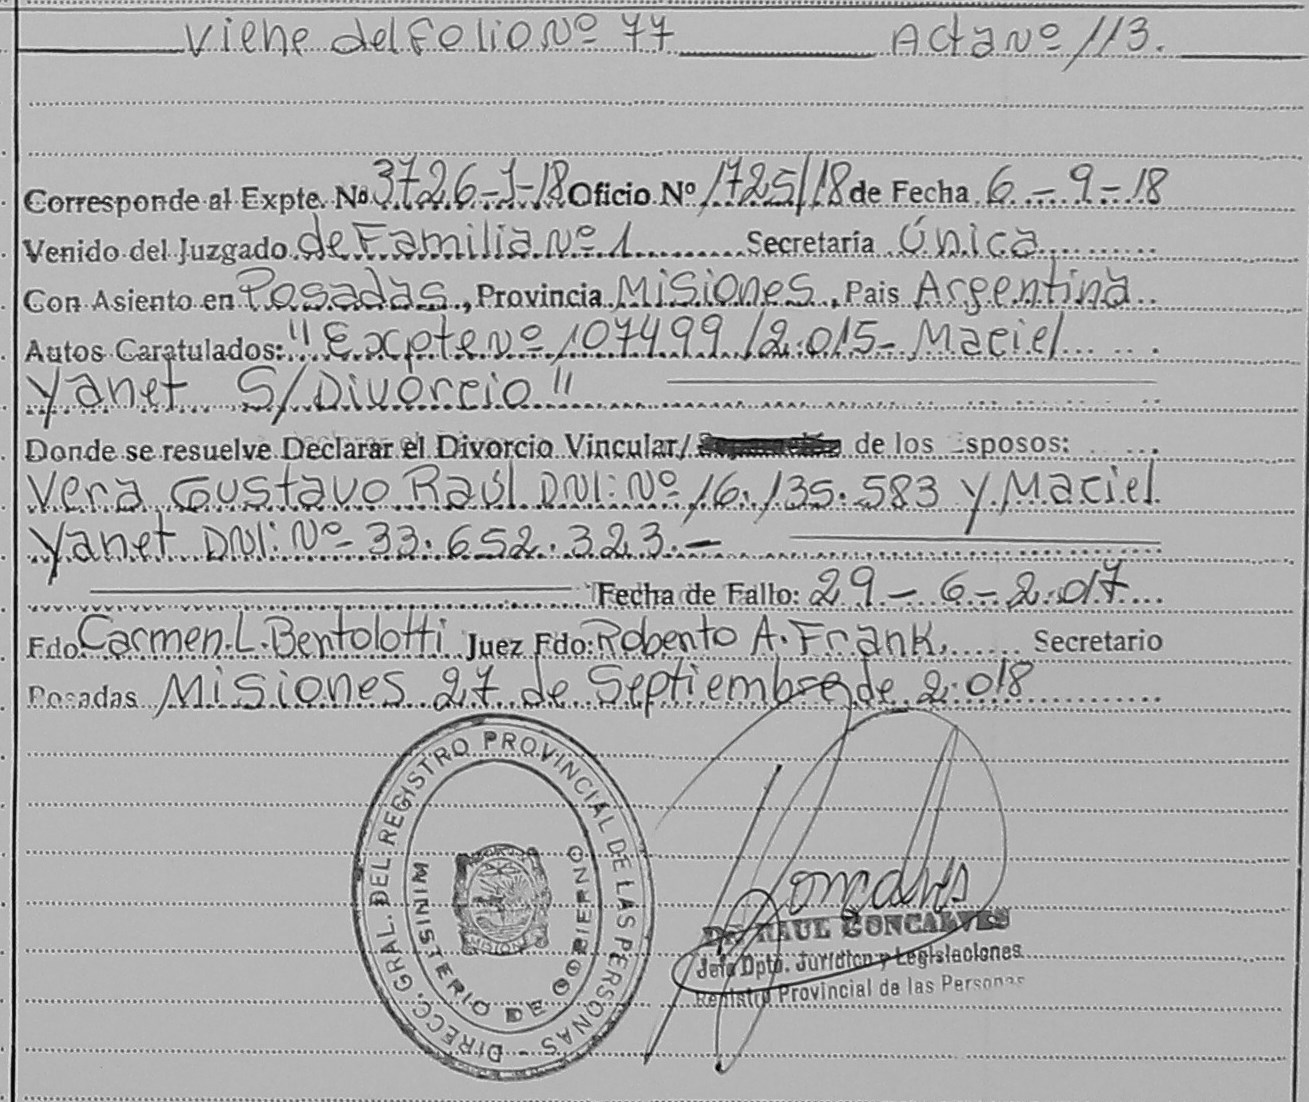 Viene del Folio Nº 77 Acta Nº 113.
Corresponde al Expte. Nº 3726-J-18 Oficio Nº 1725/18 de Fecha 6-9-18
Venido del Juzgado de Familia Nº 1 Secretaría Única
Con Asiento en Posadas, Provincia Misiones, Pais Argentina
Autos Caratulados: "Expte Nº 107499/2.015- Maciel
Yanet S/Divorcio"
Donde se resuelve Declarar el Divorcio Vincular/ de los Esposos:
Vera Gustavo Raúl DNI: Nº 16.135.583 y Maciel
Yanet DNI: Nº 33.652.323.-
Fecha de Fallo: 29-6-2.017
Fdo Carmen.L.Bentolotti Juez Fdo: Robento A. Frank. Secretario
Posadas Misiones 27 de Septiembre de 2.018
DIRECC. GRAL. DEL REGISTRO PROVINCIAL DE LAS PERSONAS -
MINISTERIO DE GOBIERNO
MISIONES
Goncalves
Dr RAUL GONCALVES
Jefe Dpto. Jurídico y Legislaciones
Registro Provincial de las Personas